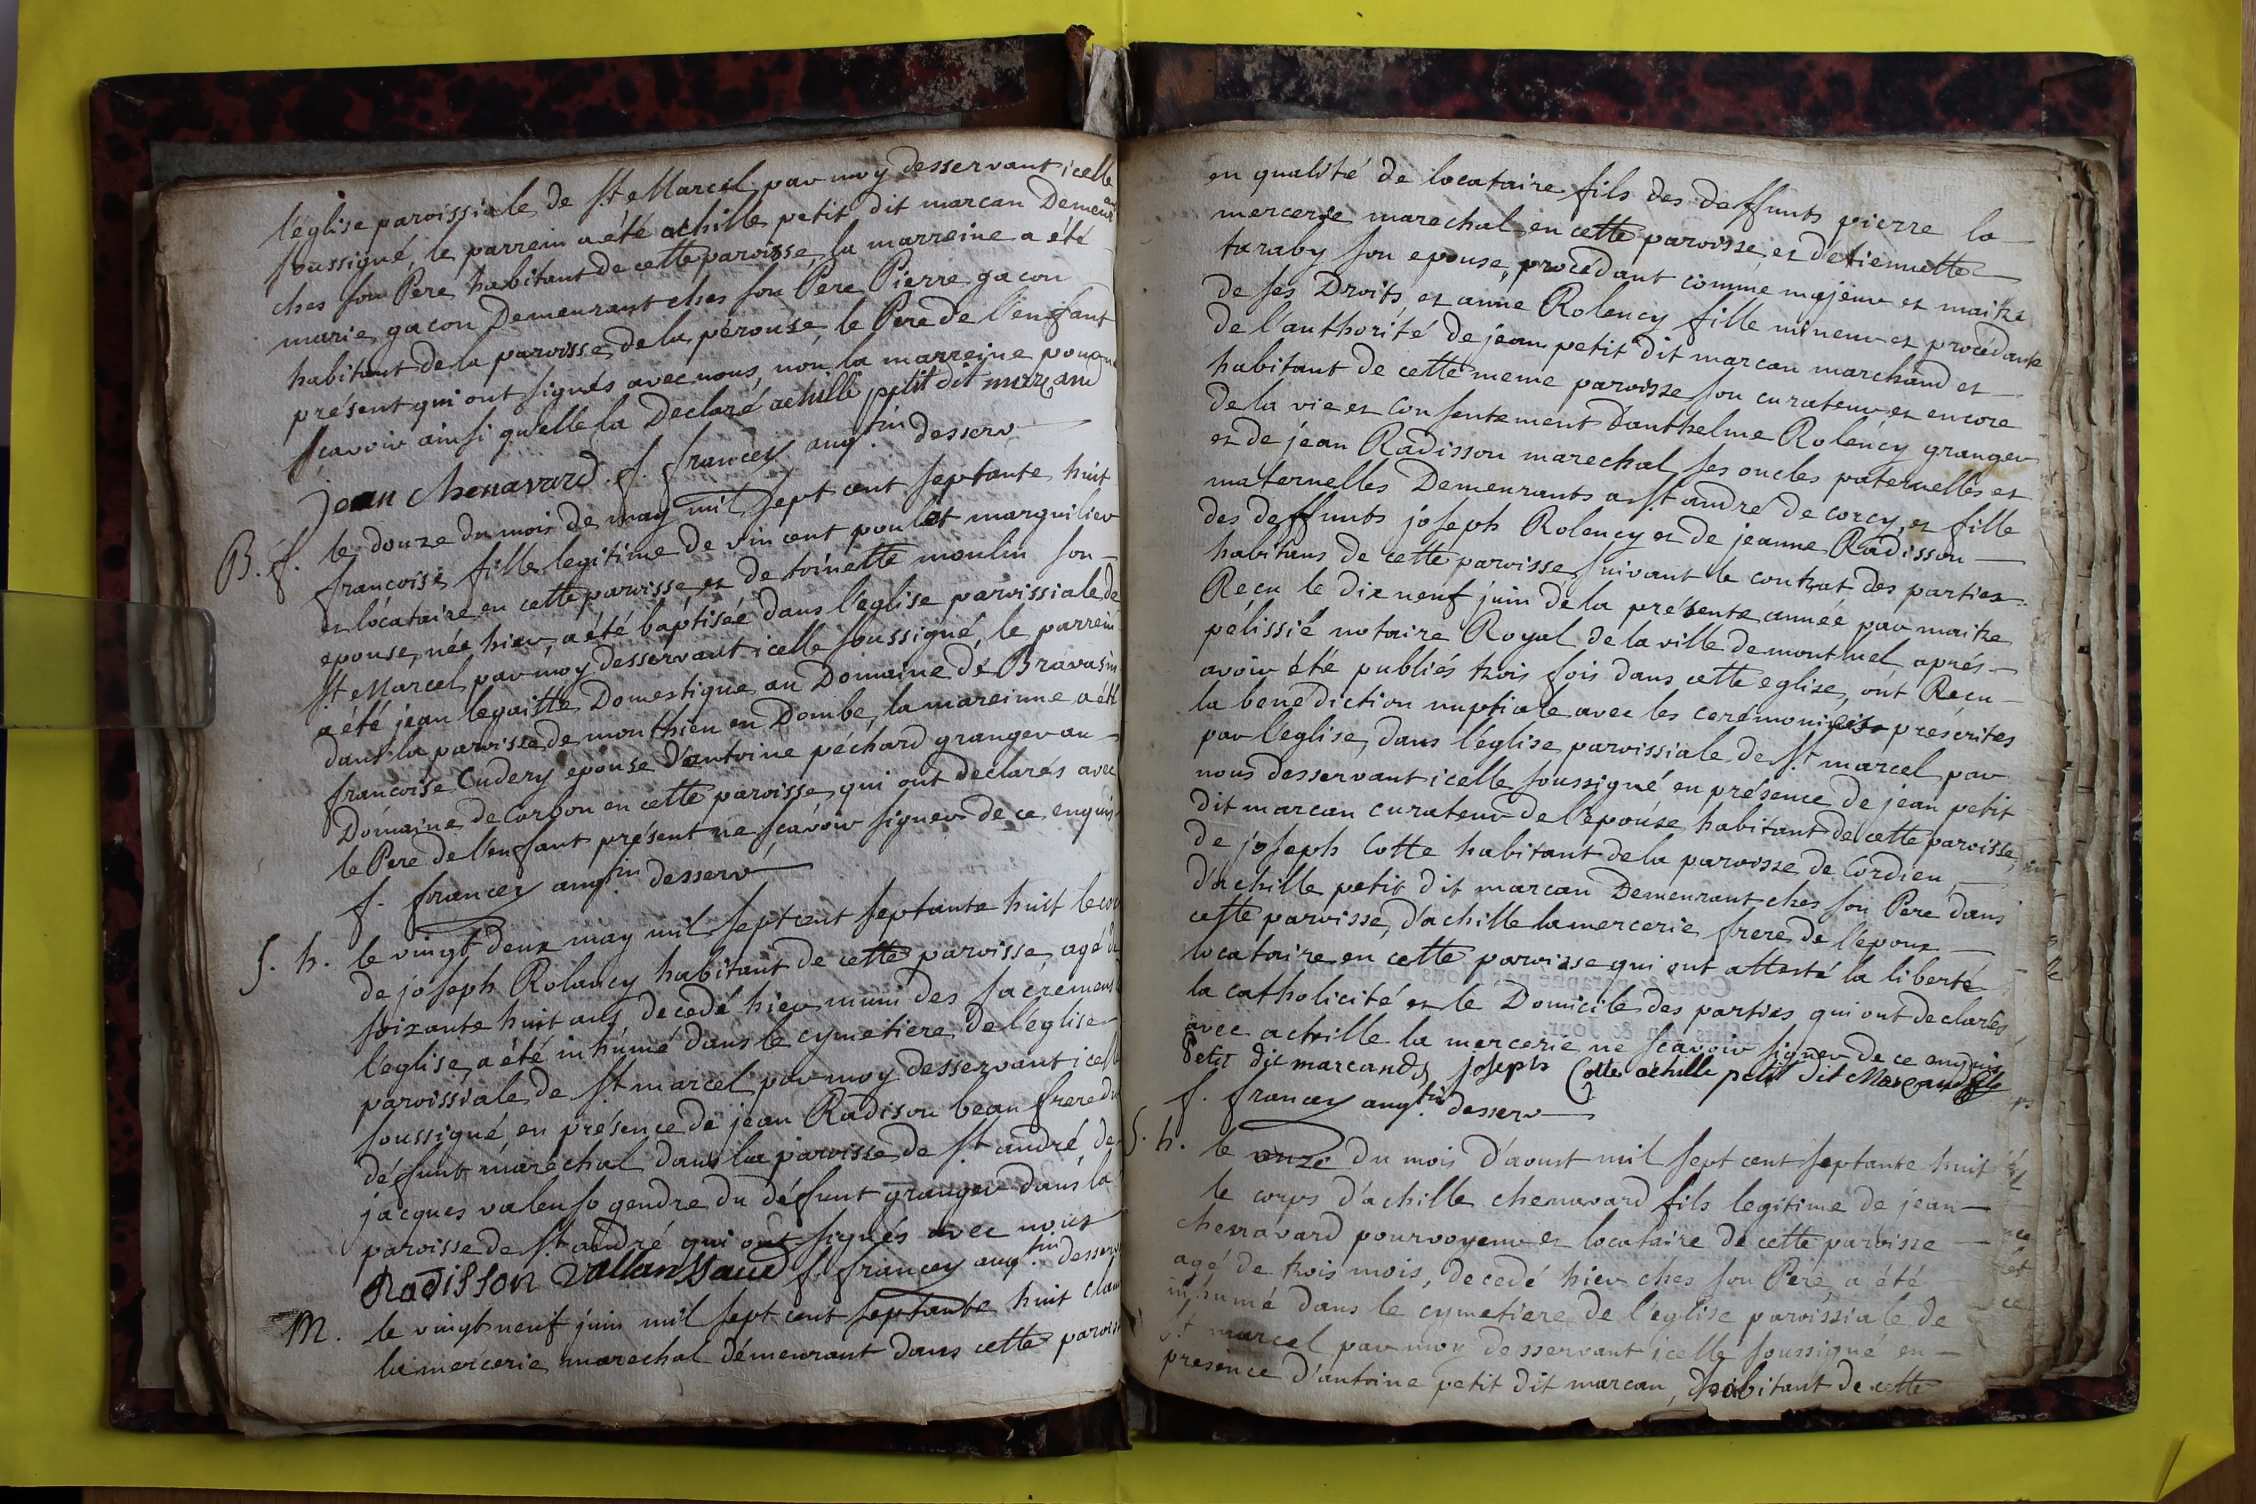 l'église paroissiale de St Marcel par moy desservant icelle
soussigné, le parrein a été achille petit dit marcan Demeur
ches son Pere habitant de cette paroisse, la marreine a été
marie gacon Demeurant ches son Pere Pierre gacon
habitant de la paroisse de la pérouse le Pere de l'enfant
présent qui ont signés avec nous, non la marreine pour ne
scavoir ainsi qu'elle la Declaré achille petit dit marcand
jean chenavard f. francey aug.tin desserv
B. f. le douze du mois de may mil sept cent septante huit
francoise fille legitime de vincent poulet marguilier
et locataire en cette paroisse et de toinette moulin son
epouse, née hier, a été baptisée dans l'eglise paroissiale de
St Marcel par moy desservant icelle soussigné, le parrein
a été jean leguitte Domestique au Domaine de Bravasin
dans la paroisse de monthieu en Dombe, la mareinne a été
francoise Cudery epouse d'antoine péchard granger au
Domaine de Corbon en cette paroisse, qui ont declarés avec
le Pere de l'enfant présent ne scavoir signer de ce enquis
f. francey aug.tin desserv
S. h. le vingt deux may mil sept cent septante huit le cor
de joseph Rolancy habitant de cette paroisse, agé de
soixante huit ans decedé hier muni des sacremens
l'église, a été inhumé dans le cymetiere de l'église
paroissiale de St marcel par moy desservant icelle
soussigné, en présence de jean Radison beau frere du
défunt maréchal dans la paroisse de St andré, de
jacques valenso gendre du défunt granger dans la
paroisse de St andré qui ont signés avec nous
Radisson f. francey aug.tin desserv
M. le vingt neuf juin mil sept cent septante huit clau
la mercerie marechal démeurant dans cette paroisse
en qualité de locataire fils des deffunts pierre la
mercerie marechal en cette paroisse et d'etiennette
taraby son epouse, procédant comme majeur et maitre
de ses Droits, et anne Rolency fille mineur et procédante
de l'authorité de jean petit dit marcan marchand et
habitant de cette meme paroisse son curateur et encore
de la vie et consentement D'anthelme Rolency granger
et de jean Radisson marechal, ses oncles paternelles et
maternelles Demeurants a St andré de corcy, et fille
des deffunts joseph Rolency et de jeanne Radisson
habitans de cette paroisse, suivant le contrat des parties
Recu le dix neuf juin de la présente année par maitre
pélissié notaire Royal de la ville de montluel aprés
avoir été publiés trois fois dans cette eglise, ont Recu
la benediction nuptiale avec les ceremonies préscrites
par l'eglise, dans l'église paroissiale de St marcel par
nous desservant icelle soussigné en présence de jean petit
dit marcan curateur de l'epouse, habitant de cette paroisse,
de joseph Cotte habitant de la paroisse de Cordieu,
d'achille petit dit marcan Demeurant ches son Pere dans
cette paroisse, d'achille la mercerie frere de l'epoux
locataire en cette paroisse qui ont attesté la liberté
la catholicité et le Domicile des parties qui ont declarés
avec achille la mercerie ne scavoir signer de ce enquis
Petit dit marcand joseph Cotte achille petit dit Marcand fils
f. francey aug.tin desserv
S. h. le onze du mois d'aoust mil sept cent septante huit
le corps d'achille chenavard fils legitime de jean
chenavard pourvoyeur et locataire de cette paroisse
agé de trois mois, decedé hier ches son Pere, a été
inhumé dans le cymetiere de l'église paroissiale de
St marcel par moy desservant icelle soussigné en
presence d'antoine petit dit marcan, habitant de cette